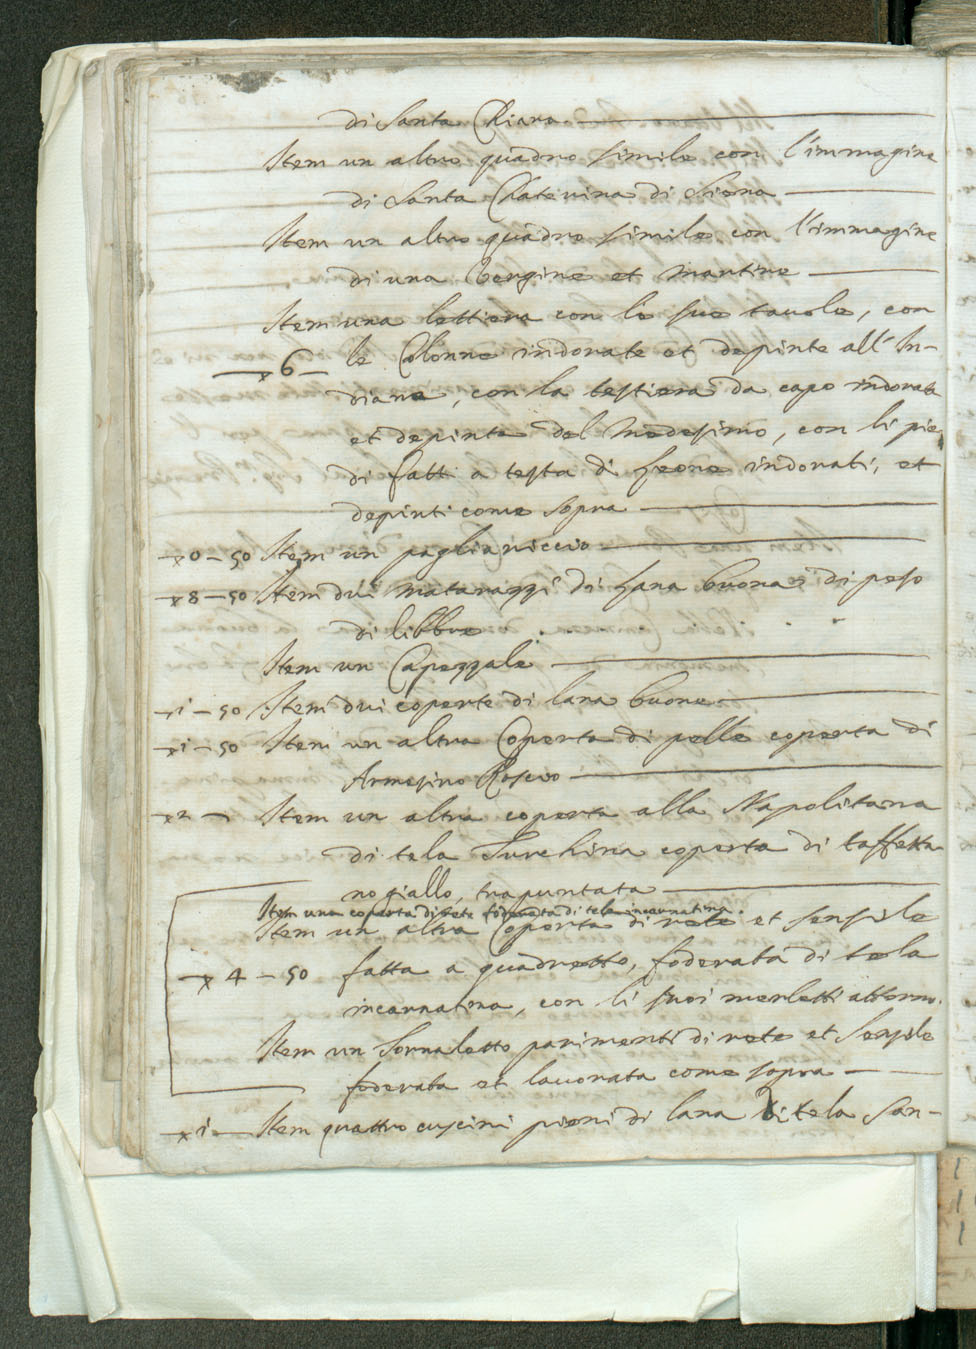 di Santa Chiara
Item un altro quadro simile con l'immagine
di Santa Chaterina di Siena
Item un altro quadro simile con l'immagine
di una Vergine et martire
Item una lettiera con le sue tavole, con
6 le Colonne indorate et depinte all'In-
diana, con la testiera da capo indorata
et depinta del medesimo, con li pie
di fatti a testa di Leone indorati, et
depinti come sopra
0-50 Item un pagliariccio
8-50 Item dui matarazzi di Lana buona di peso
di libbre
Item un Capezzale
1-50 Item dui coperte di lana buone
1-50 Item un altra Coperta di pelle coperta di
Armesino Roscio
2 Item un altra coperta alla Napolitana
di tela Turchina coperta di taffetta
no giallo, trapuntata
Item una coperta di rete foderata di tela incarnatina.
Item un altra Coperta di rete et sensile
4-50 fatta a quadretto, foderata di tela
incarnatina, con li suoi merletti attorno.
Item un Tornaletto parimenti di rete et sensile
foderata et lavorata come sopra
1 Item quattro cuscini pieni di lana di tela San-